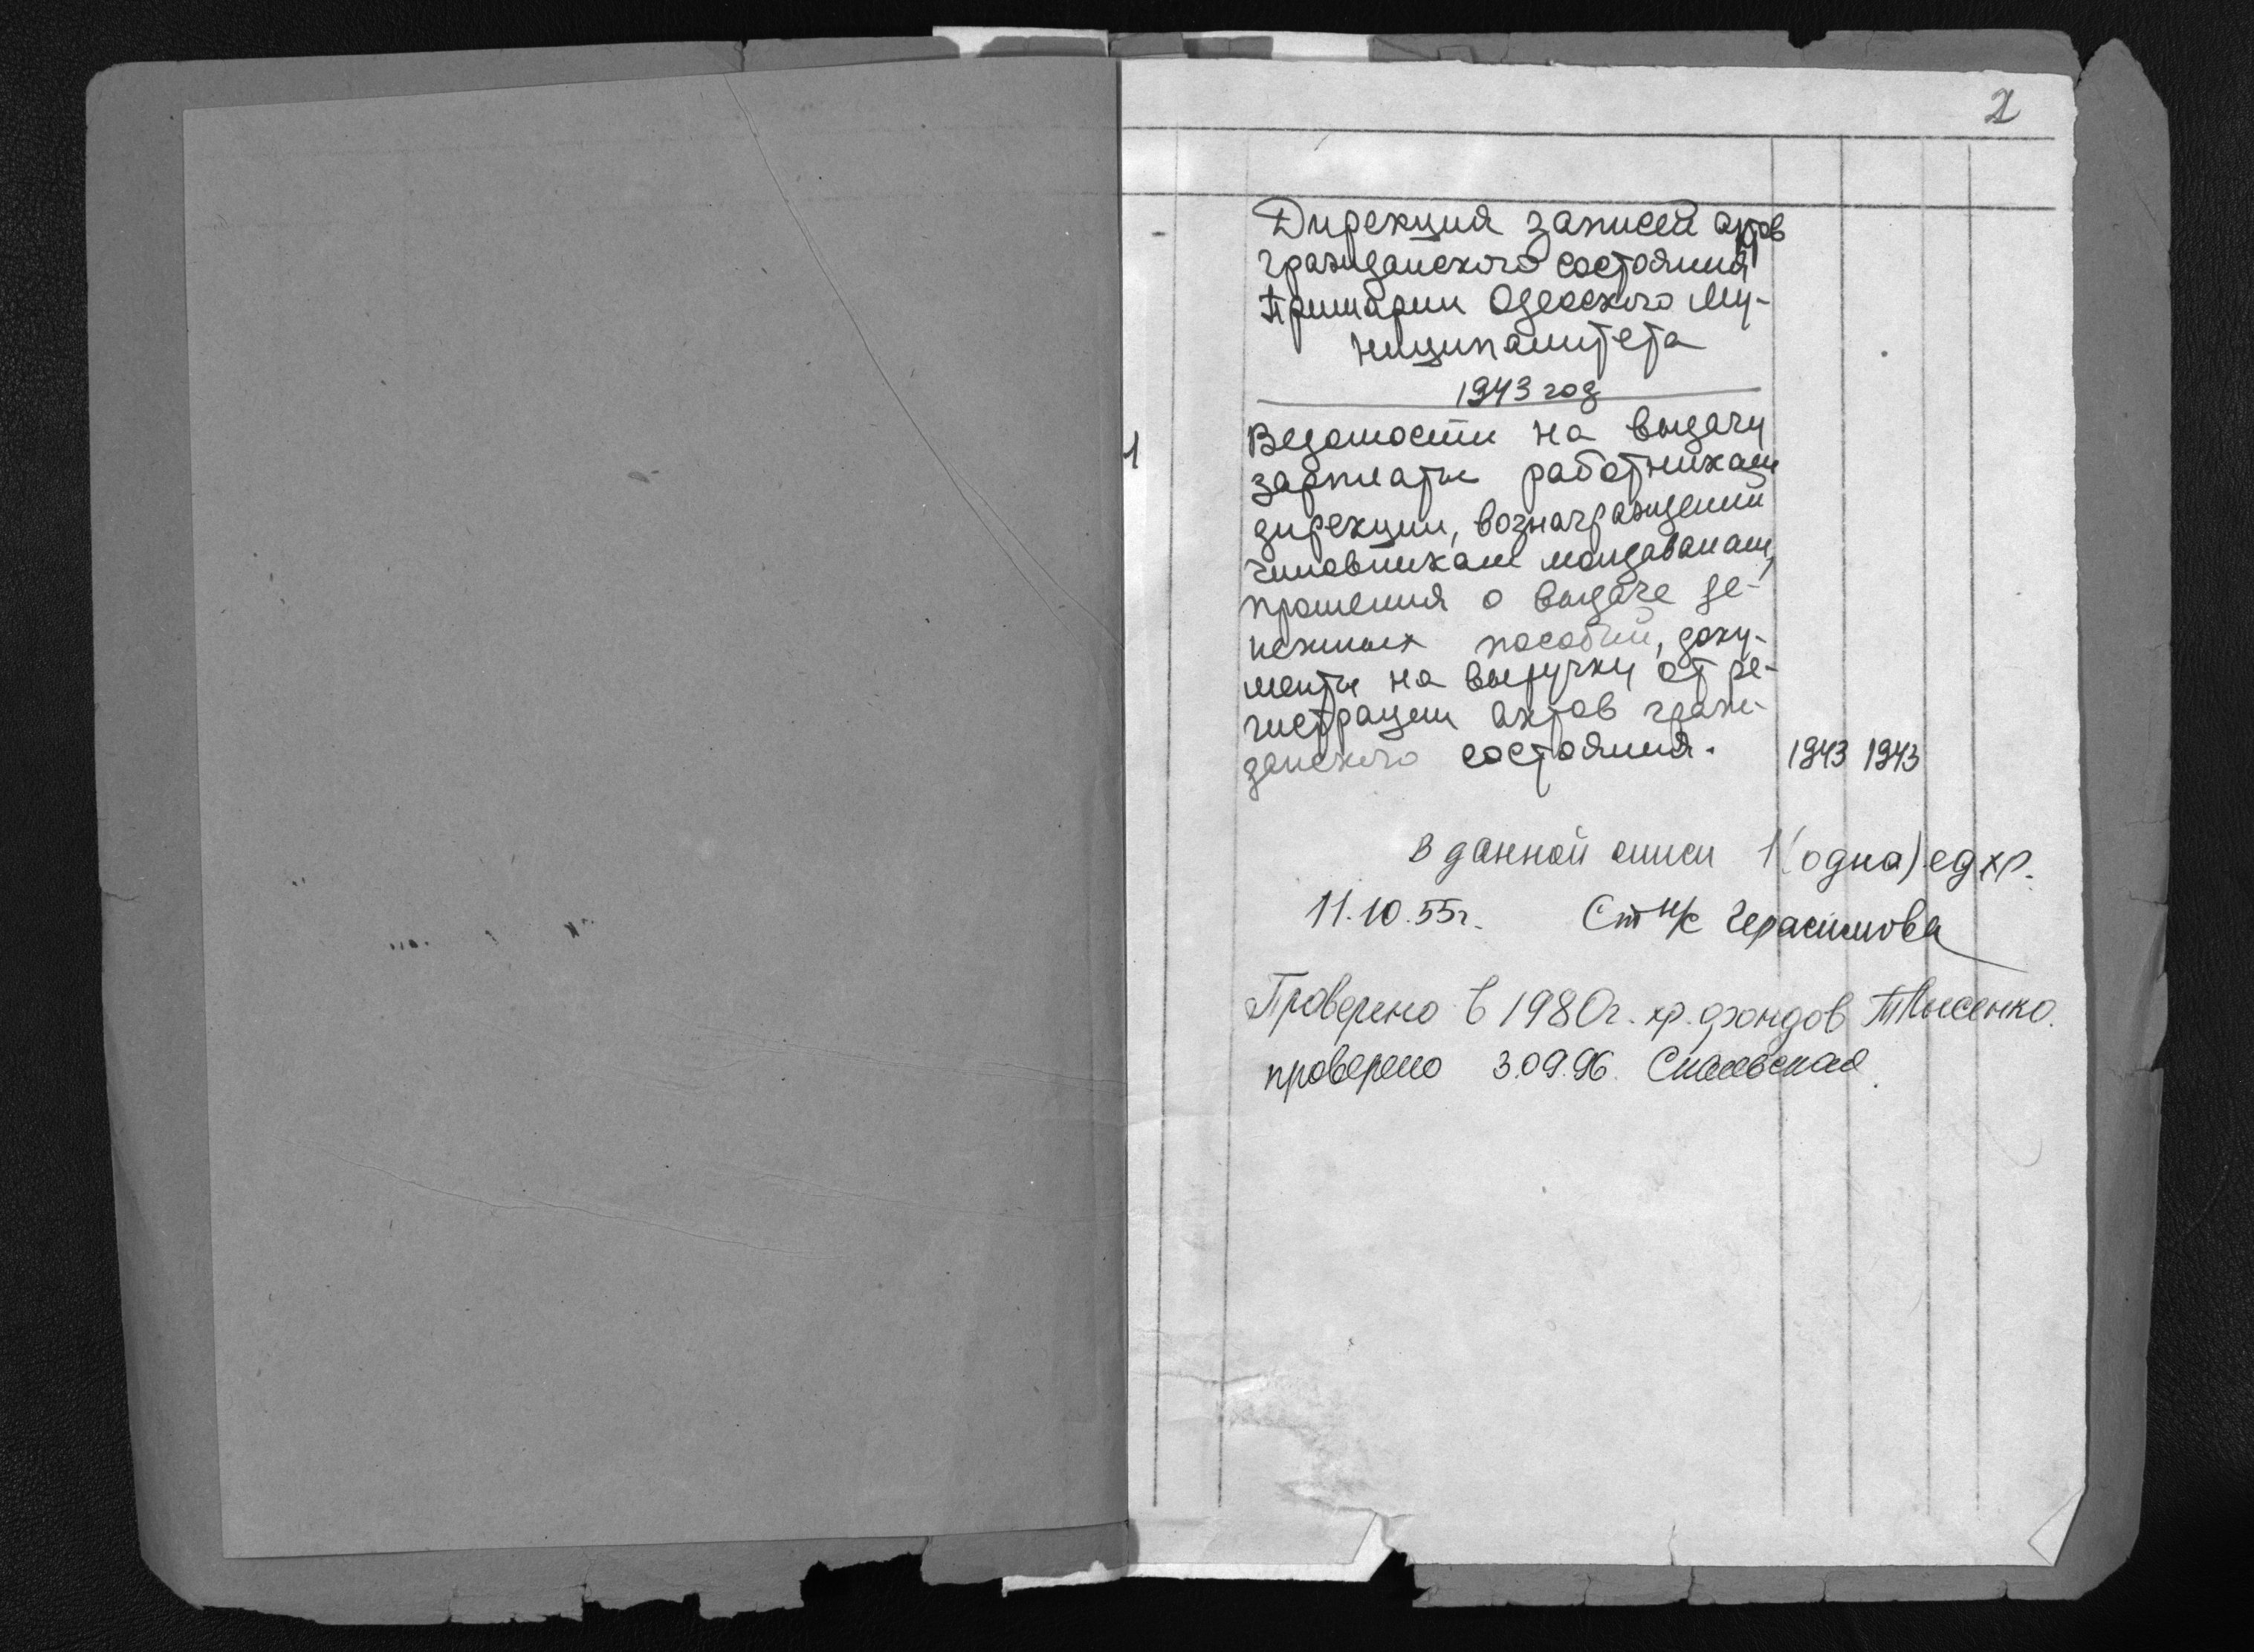 2
Дирекция записей актов
гражданского состояния
Примарии Одесского Му-
ниципалитета
1943 год
1 Ведомости на выдачу
зарплаты работникам
дирекции, вознаграждений
чиновникам молдаванам,
прошения о выдаче де-
нежных пособий, доку-
менты на выручку от ре-
гистрации актов граж-
данского состояния. 1943 1943
В данной описи 1 (одна) ед хр.
11.10.55г. Ст н/с Герасимова
Проверено в 1980г. хр. фондов
проверено 3.09.96.